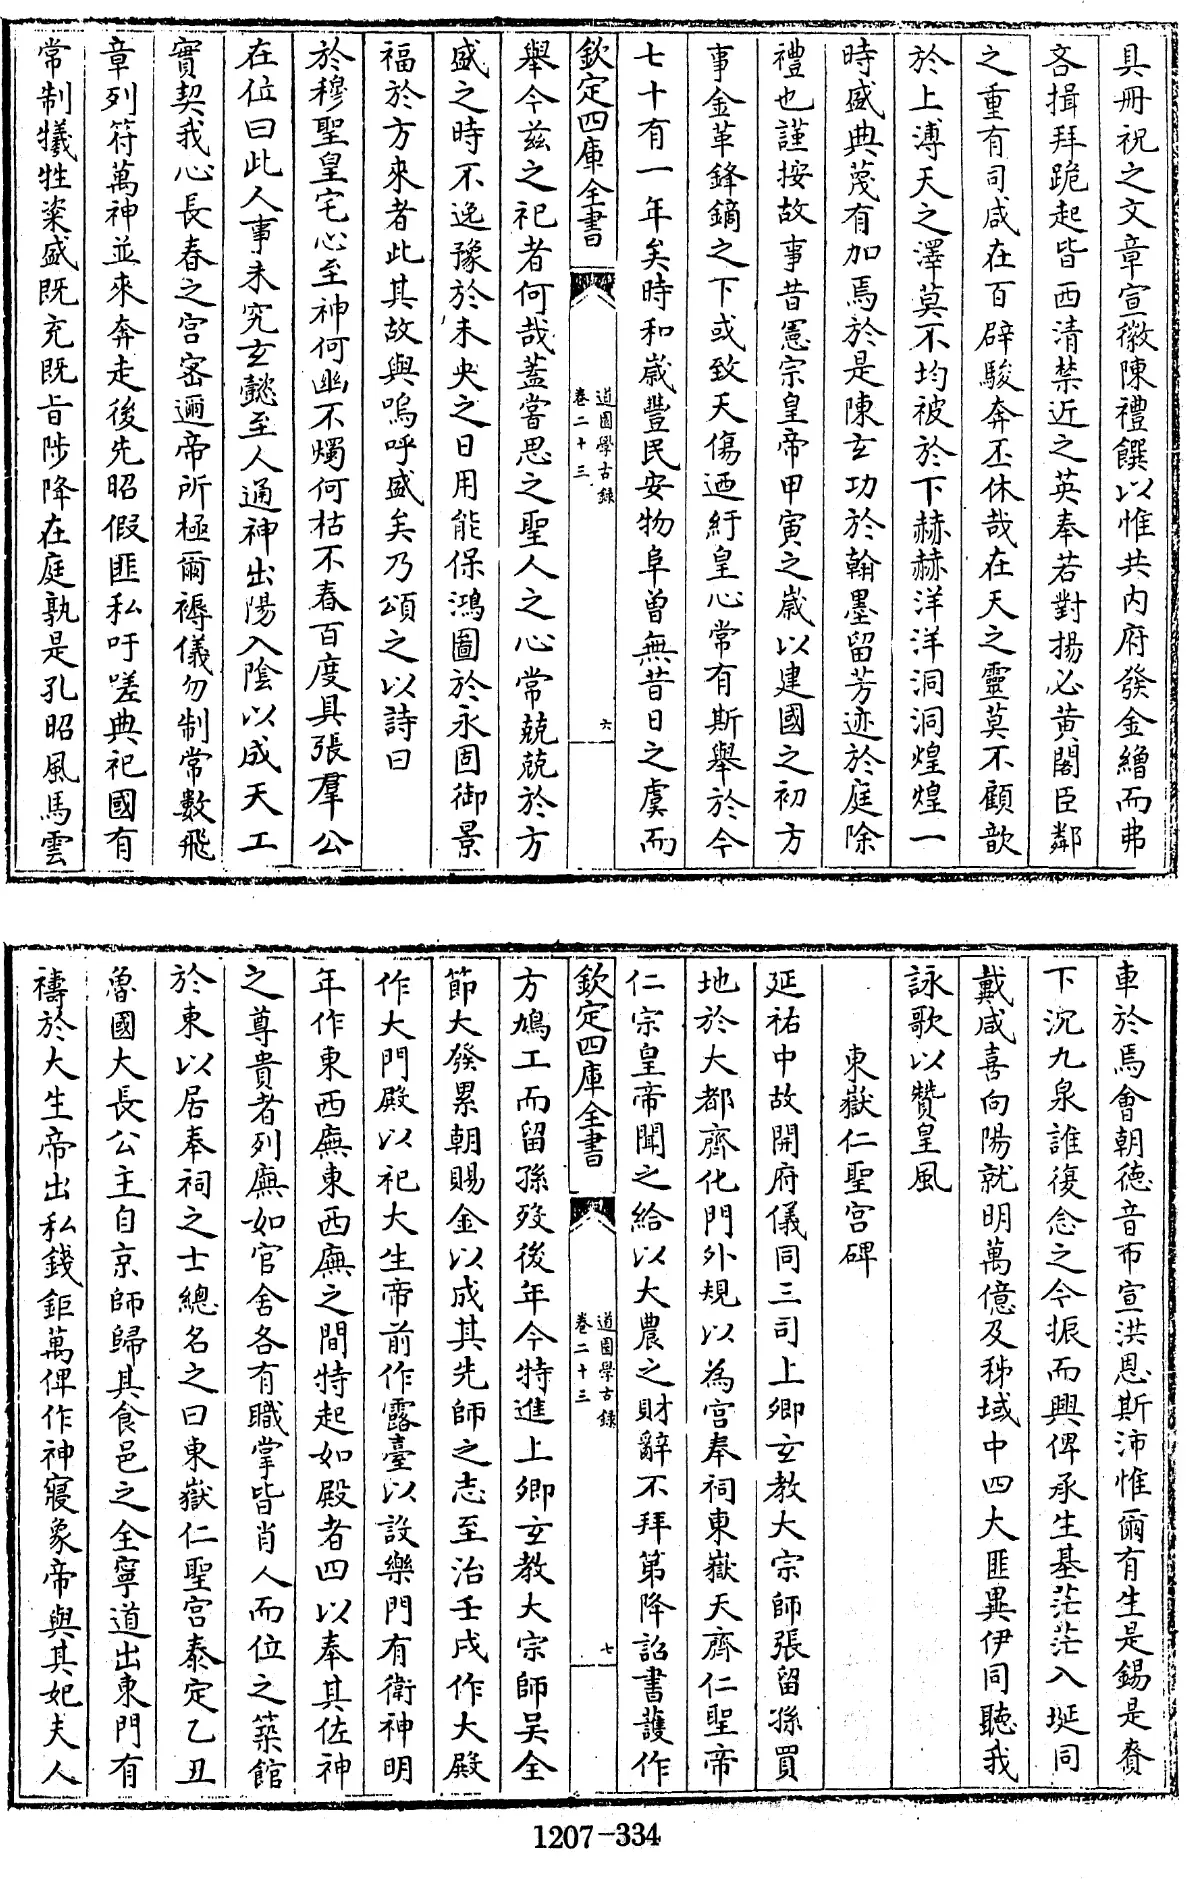 具冊祝之文章宣徽陳禮饌以惟共内府發金繒而弗
吝揖拜跪起皆西清禁近之英奉若對揚必黄閣臣鄰
之重有司咸在百辟駿奔丕休哉在天之靈莫不顧歆
於上溥天之澤莫不均被於下赫赫洋洋洞洞煌煌一
時盛典蔑有加焉於是陳玄功於翰墨留芳迹於庭除
禮也謹按故事昔憲宗皇帝甲寅之歳以建國之初方
事金革鋒鏑之下或致天傷迺紆皇心常有斯舉於今
七十有一年矣時和歳豐民安物阜曽無昔日之虞而
欽定四庫全書
道園學古錄
卷二十三
六
舉今兹之祀者何哉蓋嘗思之聖人之心常兢兢於方
盛之時不逸豫於未央之日用能保鴻圖於永固御景
福於方來者此其故與嗚呼盛矣乃頌之以詩曰
於穆聖皇宅心至神何幽不燭何枯不春百度具張羣公
在位曰此人事未究玄懿至人通神出陽入陰以成天工
實契我心長春之宫宻邇帝所極爾禱儀勿制常數飛
章列符萬神並來奔走後先昭假匪私吁嗟典祀國有
常制犧牲粢盛既充既旨陟降在庭孰是孔昭風馬雲
車於焉㑹朝徳音布宣洪恩斯沛惟爾有生是錫是賚
下沉九泉誰復念之今振而興俾承生基茫茫入埏同
戴咸喜向陽就明萬億及秭域中四大匪異伊同聽我
詠歌以贊皇風
東嶽仁聖宫碑
延祐中故開府儀同三司上卿玄教大宗師張留孫買
地於大都齊化門外規以為宫奉祠東嶽天齊仁聖帝
仁宗皇帝聞之給以大農之財辭不拜第降詔書護作
欽定四庫全書
道園學古錄
卷二十三
七
方鳩工而留孫歿後年今特進上卿玄教大宗師吴全
節大發累朝賜金以成其先師之志至治壬戌作大殿
作大門殿以祀大生帝前作露臺以設樂門有衛神明
年作東西廡東西廡之間特起如殿者四以奉其佐神
之尊貴者列廡如官舍各有職掌皆肖人而位之築館
於東以居奉祠之士總名之曰東嶽仁聖宫泰定乙丑
魯國大長公主自京師歸其食邑之全寧道出東門有
禱於大生帝出私錢鉅萬俾作神寢象帝與其妃夫人
1207-334